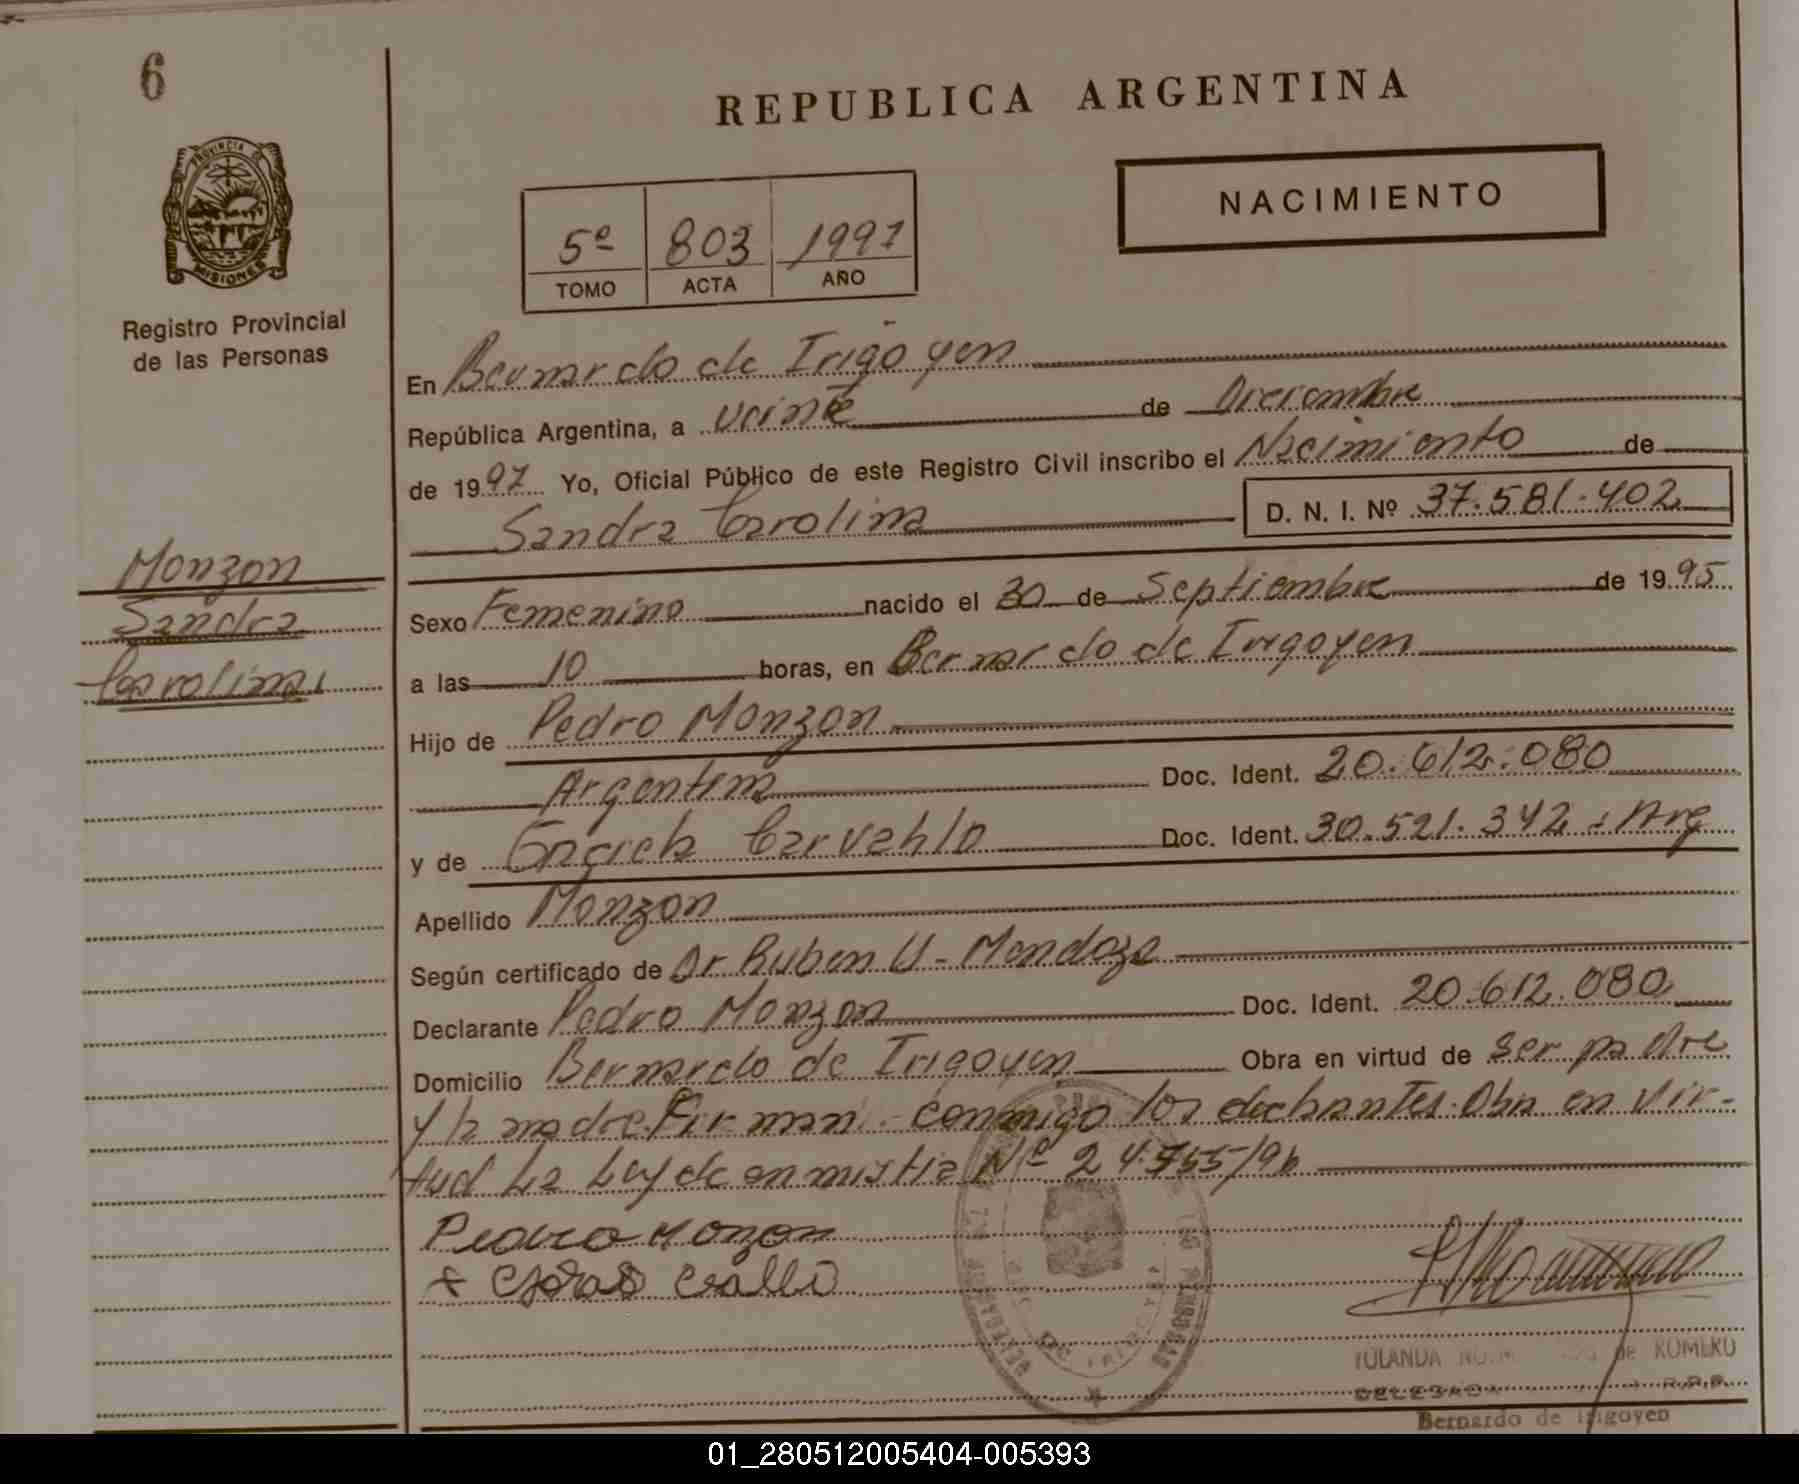 6
REPUBLICA ARGENTINA
NACIMIENTO
PROVINCIA DE
MISIONES
Registro Provincial
de las Personas
5º 803 1997
TOMO ACTA AÑO
En Bernardo de Irigoyen
República Argentina, a veinte de Diciembre
de 1997 Yo, Oficial Público de este Registro Civil inscribo el Nacimiento de
Sandra Carolina D. N. I. Nº 37.581.402
Monzon
Sandra
Carolina
Sexo Femenino nacido el 30 de Septiembre de 1995
a las 10 horas, en Bernardo de Irigoyen
Hijo de Pedro Monzon
Argentina Doc. Ident. 20.612.080
y de Carvahlo Doc. Ident. 30.521.342 Arg
Apellido Monzon
Según certificado de Dr Ruben U. Mendoza
Declarante Pedro Monzon Doc. Ident. 20.612.080
Domicilio Bernardo de Irigoyen Obra en virtud de ser padre
y la madre. Firman conmigo los declarantes. Obra en vir-
tud La Ley de anmistia Nº 24.755/96
Pedro Monzon
YOLANDA de ROMERO
DELEGADA R.P.P.
Bernardo de Irigoyen
01_280512005404-005393